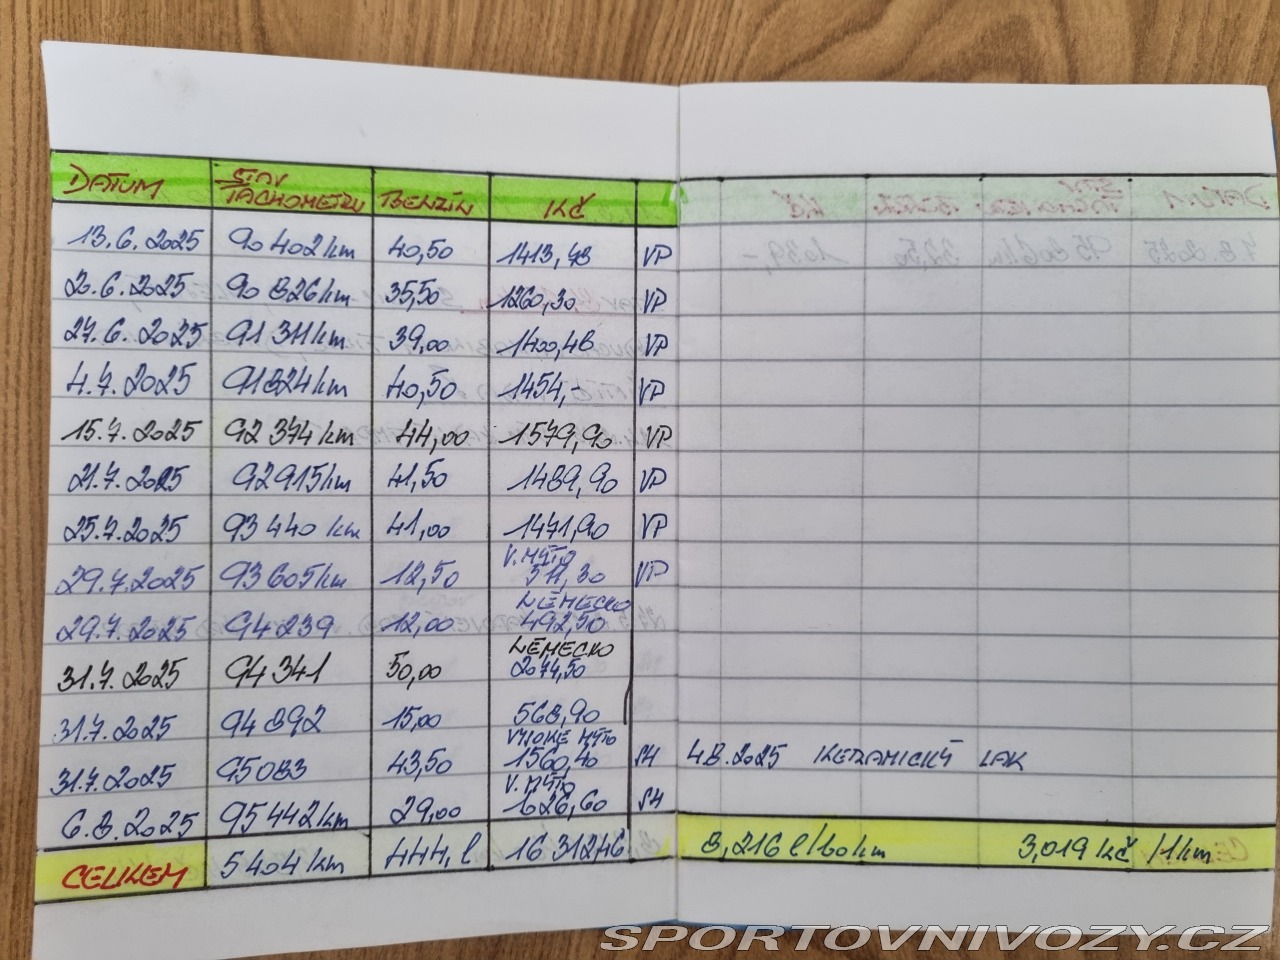 DATUM STAV TACHOMETRU BENZÍN KČ
13.6.2025 90 402 km 40,50 1413,48 VP
2.6.2025 90 826 km 35,50 1260,30 VP
27.6.2025 91 311 km 39,00 1400,48 VP
4.7.2025 91824 km 40,50 1454,- VP
15.7.2025 92 374 km 44,00 1579,90 VP
21.7.2025 92915 km 41,50 1489,90 VP
25.7.2025 93 440 km 41,00 1471,90 VP
V. MÝTO
29.7.2025 93605 km 12,50 511,30 VP
NĚMECKO
29.7.2025 94 239 12,00 492,50
NĚMECKO
31.7.2025 94 341 50,00 2074,50
31.7.2025 94 892 15,00 568,90
VYSOKÉ MÝTO
31.7.2025 95083 43,50 1560,40 S4 4.8.2025 KERAMICKÝ LAK
V. MÝTO
6.8.2025 95 442 km 29,00 S4
CELKEM 5 404 km 444,l 16 312,46 8,216 l/100km 3,019 Kč /1km
SPORTOVNIVOZY.CZ